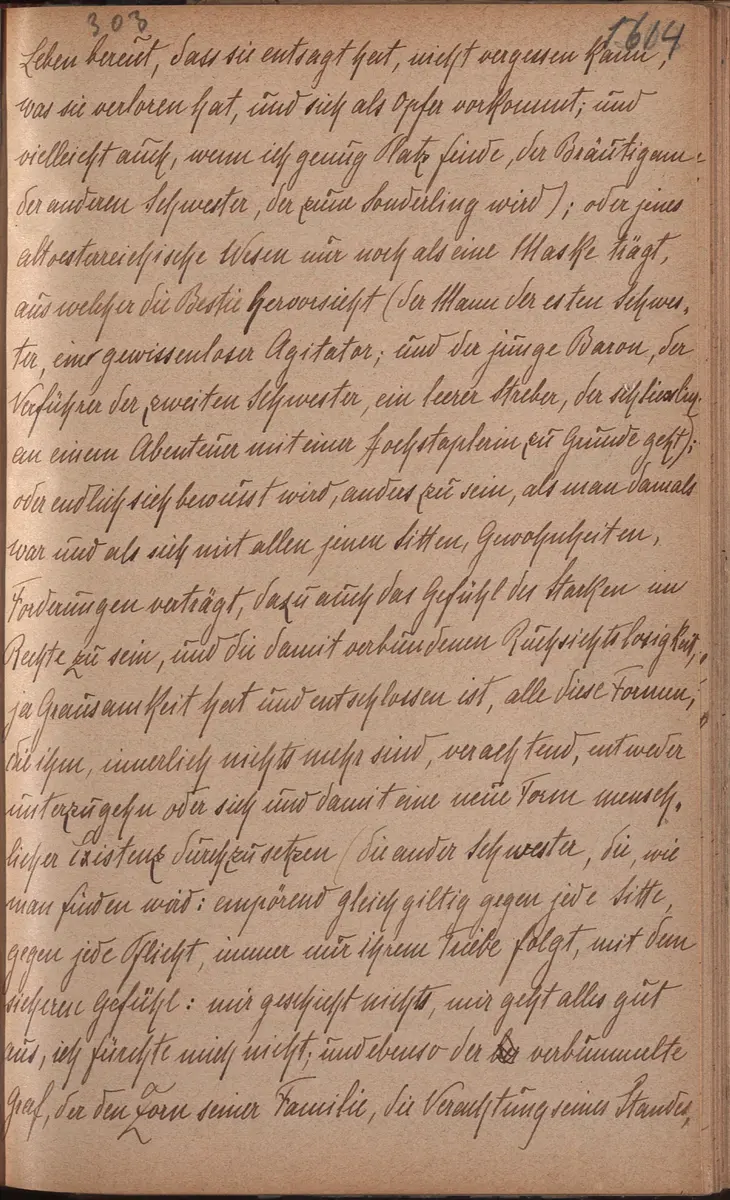 303
1604
Leben bereut, dass sie entsagt hat, nicht vergessen kann,
was sie verloren hat, und sich als Opfer vorkommt; und
vielleicht auch, wenn ich genug Platz finde, der Bräutigam
der anderen Schwester, der zum Sonderling wird); oder jenes
altoesterreichische Wesen nur noch als eine Maske trägt,
aus welcher die Bestie hervorsieht (der Mann der esten Schwes-
ter, ein gewissenloser Agitator; und der junge Baron, der
Verführer der zweiten Schwester, ein leerer Streber, der schliesslich
an einem Abenteuer mit einer Hochstaplerin zu Grunde geht);
oder endlich sich bewusst wird, anders zu sein, als man damals
war und als sich mit allen jenen Sitten, Gewohnheiten,
Forderungen verträgt, dazu auch das Gefühl des Starken im
Rechte zu sein, und die damit verbundenen Rücksichtslosigkeit,
ja Grausamkeit hat und entschlossen ist, alle diese Formen,
die ihm, innerlich nichts mehr sind, verachtend, entweder
unterzugehn oder sich und damit eine neue Form mensch-
licher Existenz durchzusetzen (die ander Schwester, die, wie
man finden wird: empörend gleichgiltig gegen jede Sitte,
gegen jede Pflicht, immer nur ihrem Triebe folgt, mit dem
sicheren Gefühl: mir geschieht nichts, mir geht alles gut
aus, ich fürchte mich nicht; und ebenso der verbummelte
Graf, der den Zorn seiner Familie, die Verachtung seines Standes,